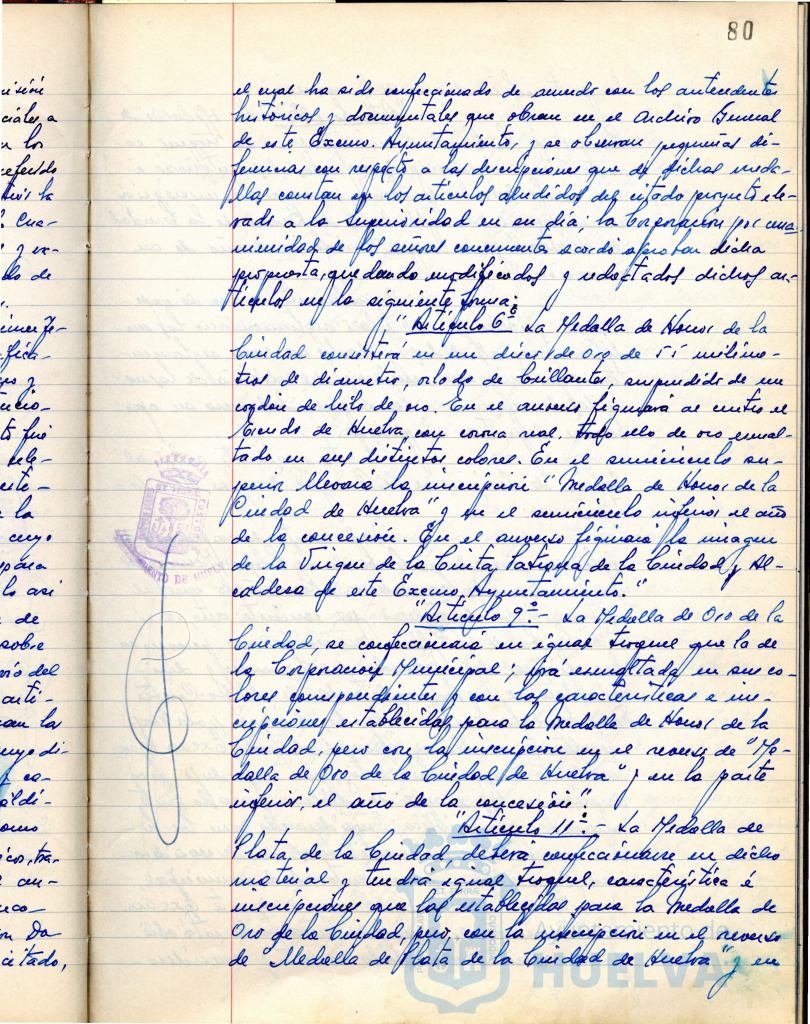 80
el cual ha sido confeccionado de acuerdo con los antecedentes
históricos y documentales que obran en el Archivo General
de este Excmo. Ayuntamiento, y se observan pequeñas di-
ferencias con respecto a las descripciones que de dichas meda-
llas constan en los artículos aludidos del citado proyecto ele-
vado a la Superioridad en su día; la Corporación por una-
nimidad de los señores concurrentes acordó aprobar dicha
propuesta, quedando modificados y redactados dichos ar-
tículos en la siguiente forma:
"Artículo 6º La Medalla de Honor de la
Ciudad consistirá en un disco de Oro de 55 milíme-
tros de diámetro, orlado de brillantes, suspendido de un
cordón de hilo de oro. En el anverso figurará al centro el
Escudo de Huelva, con corona real, todo ello de oro esmal-
tado en sus distintos colores. En el semicírculo su-
perior llevará la inscripción "Medalla de Honor de la
Ciudad de Huelva" y en el semicírculo inferior el año
de la concesión. En el anverso figurará la imagen
de la Virgen de la Cinta, Patrona de la Ciudad y Al-
caldesa de este Excmo. Ayuntamiento."
"Artículo 9º.- La Medalla de Oro de la
Ciudad, se confeccionará en igual troquel que la de
la Corporación Municipal; irá esmaltada en sus co-
lores correspondientes y con las características e ins-
cripciones establecidas para la Medalla de Honor de la
Ciudad, pero con la inscripción en el reverso de "Me-
dalla de Oro de la Ciudad de Huelva" y en la parte
inferior, el año de la concesión".
"Artículo 11º.- La Medalla de
Plata de la Ciudad deberá confeccionarse en dicho
material y tendrá igual troquel, característica é
inscripciones que las establecidas para la Medalla de
Oro de la Ciudad, pero con la inscripción en el reverso
de "Medalla de Plata de la Ciudad de Huelva" y en
Ayuntamiento de
HUELVA